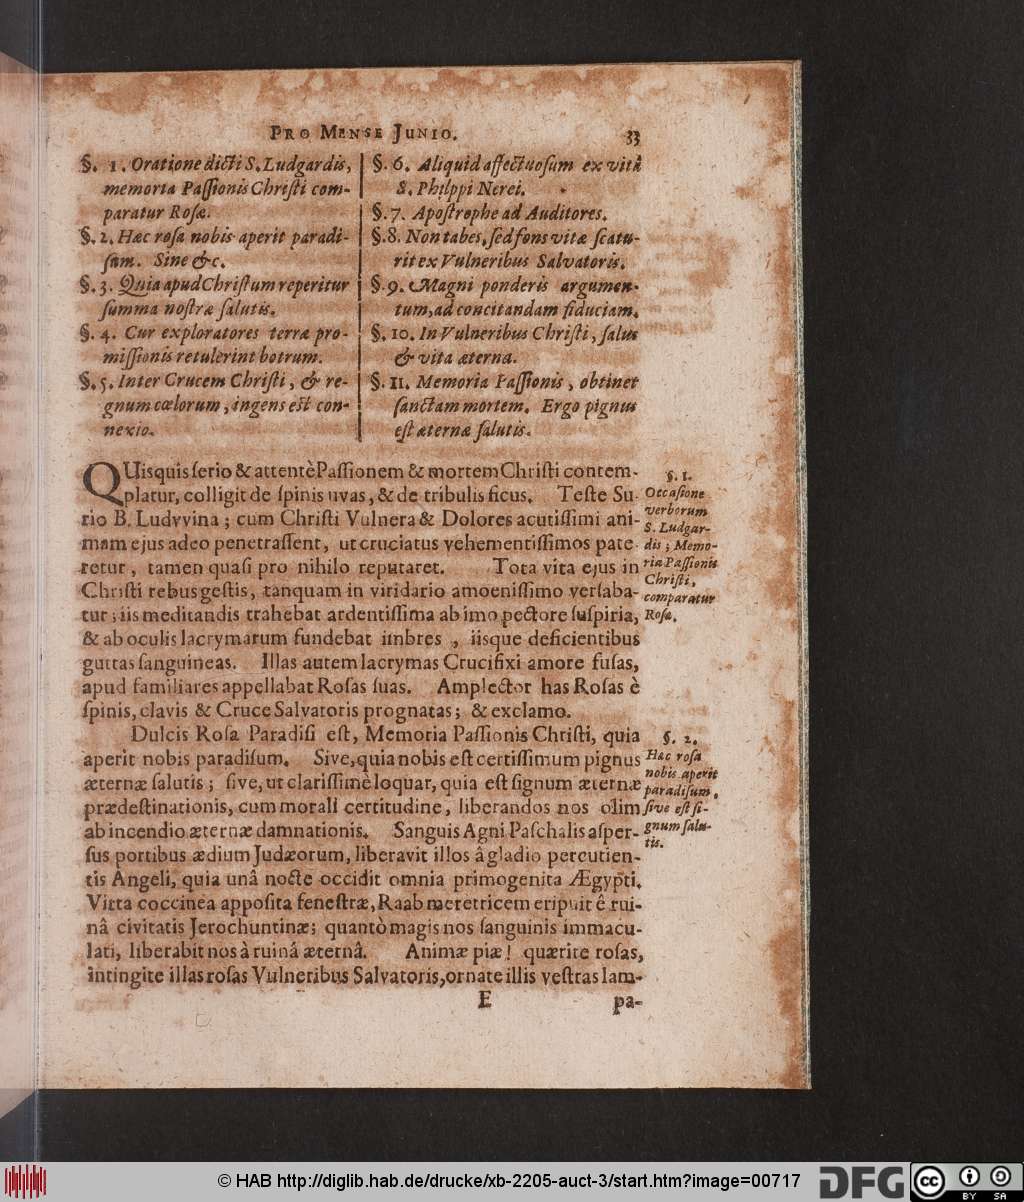 PRO MENSE JUNIO. 33
§. 1. Oratione dicti S. Ludgardis,
memoria Paſſionis Chriſti com-
paratur Roſæ.
§. 2. Hæc roſa nobis aperit paradi-
ſum. Sine &c.
§. 3. Quia apud Chriſtum reperitur
ſumma noſtræ ſalutis.
§. 4. Cur exploratores terræ pro-
miſſionis retulerint botrum.
§. 5. Inter Crucem Chriſti, & re-
gnum cœlorum, ingens eſt con-
nexio.
§. 6. Aliquid affectuoſum ex vitâ
S. Philppi Nerei.
§. 7. Apoſtrophe ad Auditores.
§. 8. Non tabes, ſed fons vitæ ſcatu-
rit ex Vulneribus Salvatoris.
§. 9. Magni ponderis argumen-
tum, ad concitandam fiduciam.
§. 10. In Vulneribus Chriſti, ſalus
& vita æterna.
§. 11. Memoria Paſſionis, obtinet
ſanctam mortem. Ergo pignus
eſt æternæ ſalutis.
QUisquis ſerio & attentè Paſſionem & mortem Chriſti contem-
platur, colligit de ſpinis uvas, & de tribulis ficus. Teſte Su-
rio B. Ludvvina; cum Chriſti Vulnera & Dolores acutiſſimi ani-
mam ejus adeo penetraſſent, ut cruciatus vehementiſſimos pate-
retur, tamen quaſi pro nihilo reputaret. Tota vita ejus in
Chriſti rebus geſtis, tanquam in viridario amoeniſſimo verſaba-
tur; iis meditandis trahebat ardentiſſima ab imo pectore ſuſpiria,
& ab oculis lacrymarum fundebat imbres, iisque deficientibus
guttas ſanguineas. Illas autem lacrymas Crucifixi amore fuſas,
apud familiares appellabat Roſas ſuas. Amplector has Roſas è
ſpinis, clavis & Cruce Salvatoris prognatas; & exclamo.
§. 1.
Occaſione
verborum
S. Ludgar-
dis; Memo-
ria Paſſionis
Chriſti,
comparatur
Roſæ.
Dulcis Roſa Paradiſi eſt, Memoria Paſſionis Chriſti, quia
aperit nobis paradiſum. Sive, quia nobis eſt certiſſimum pignus
æternæ ſalutis; ſive, ut clariſſimè loquar, quia eſt ſignum æternæ
prædeſtinationis, cum morali certitudine, liberandos nos olim
ab incendio æternæ damnationis. Sanguis Agni Paſchalis aſper-
ſus portibus ædium Judæorum, liberavit illos â gladio percutien-
tis Angeli, quia unâ nocte occidit omnia primogenita Ægypti.
Vitta coccinea appoſita feneſtræ, Raab meretricem eripuit ê rui-
nâ civitatis Jerochuntinæ; quantò magis nos ſanguinis immacu-
lati, liberabit nos à ruinâ æternâ. Animæ piæ! quærite roſas,
intingite illas roſas Vulneribus Salvatoris, ornate illis veſtras lam-
§. 2.
Hæc roſa
nobis aperit
paradiſum,
ſive eſt ſi-
gnum ſalu-
tis.
E pa-
© HAB http://diglib.hab.de/drucke/xb-2205-auct-3/start.htm?image=00717
DFG
cc BY SA